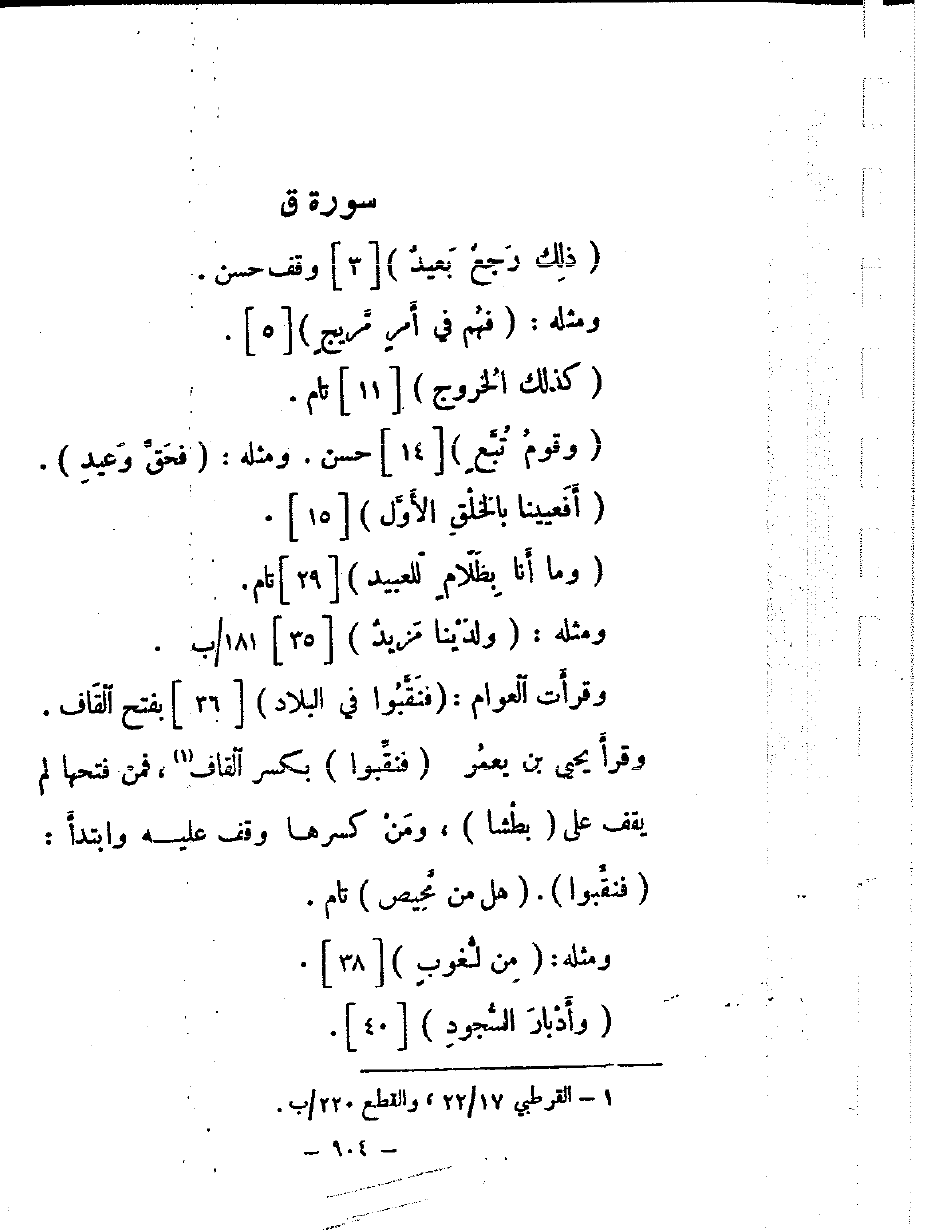 سورة ق
( ذلِك رَجعٌ بَعيدٌ ) [ ٣ ] وقف حسن .
ومثله : ( فهُم في أَمرٍ مَّريجٍ ) [ ٥ ] .
( كذلك الخُروج ) [ ١١ ] تام .
( وقومُ تُبَّعٍ ) [ ١٤ ] حسن . ومثله : ( فحَقَّ وَعيدِ ) .
( أَفَعيينا بالخَلْقِ الأَوَّل ) [ ١٥ ] .
( وما أَنا بِظَلّامٍ للعبيد ) [ ٢٩ ] تام .
ومثله : ( ولدَيْنا مَزيدٌ ) [ ٣٥ ] ١٨١/ب .
وقرأت العوام : ( فنَقَّبُوا في البلاد ) [ ٣٦ ] بفتح القَاف .
وقرأ يحيى بن يعمُر ( فنقِّبوا ) بكسر القاف(١) ، فمنْ فتحها لم
يقف على ( بطْشا ) ، ومَنْ كسرها وقف عليه وابتدأَ :
( فنقِّبوا ) . ( هل من مَّحِيص ) تام .
ومثله : ( مِن لُّغوبٍ ) [ ٣٨ ] .
( وأَدْبارَ السُّجودِ ) [ ٤٠ ] .
١ – القرطبي ٢٢/١٧ ، والقطع ٢٢٠/ب .
– ٩٠٤ –